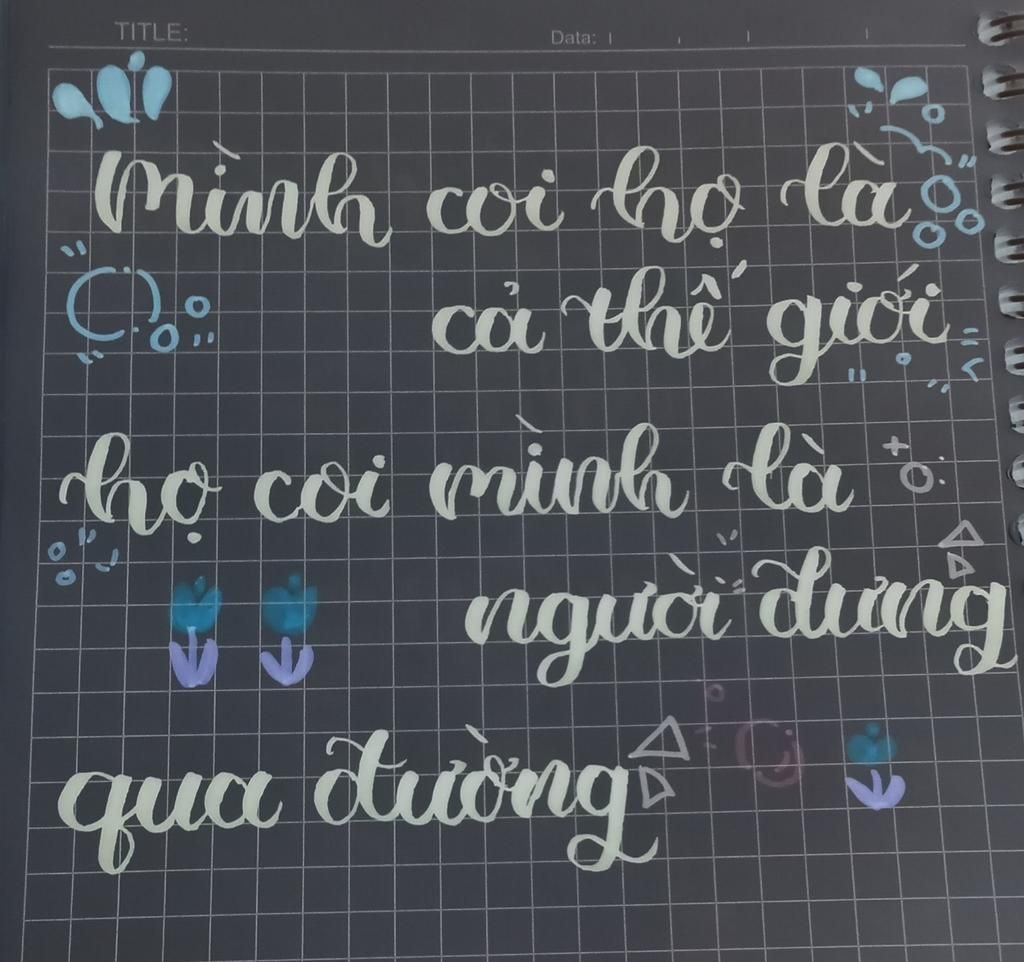 TITLE:
Data:
Mình coi họ là
cả thế giới
họ coi mình là
người dưng
qua đường